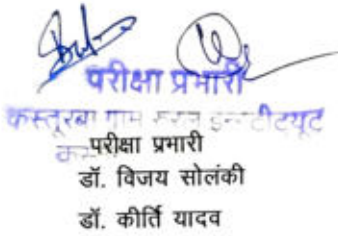 परीक्षा प्रभारी
कस्तूरबा ग्राम रूरल इन्स्टीट्यूट
परीक्षा प्रभारी
डॉ. विजय सोलंकी
डॉ. कीर्ति यादव